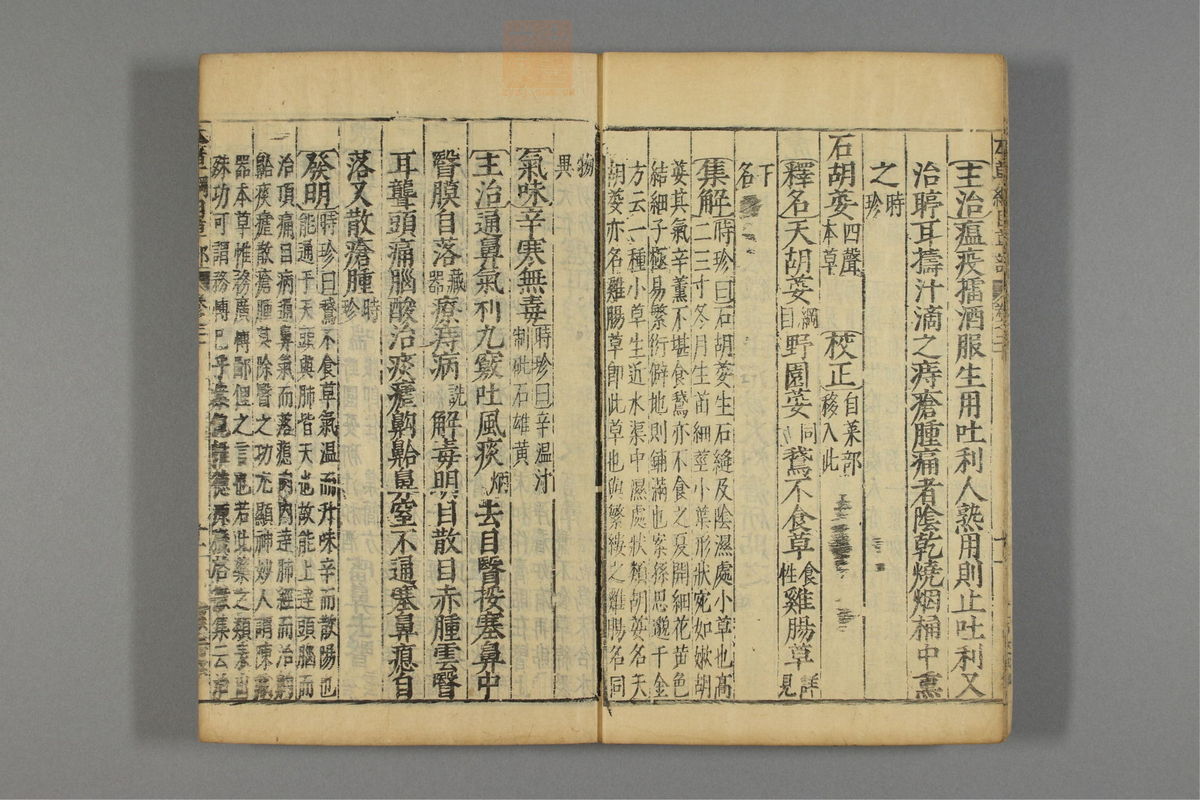 主治瘟疫擂酒服生用吐利人熟用則止吐利又
治聤耳擣汁滴之痔瘡腫痛者陰乾燒烟桶中熏
之時珍
石胡荽四聲本草 校正自菜部移入此
釋名天胡荽綱目野園荽同鵞不食草食性雞腸草詳見
下名
集解時珍曰石胡荽生石縫及陰濕處小草也高
二三寸冬月生苗細莖小葉形狀宛如嫩胡
荽其氣辛薰不堪食鵞亦不食之夏開細花黃色
結細子極易繁衍僻地則鋪滿也案孫思邈千金
方云一種小草生近水渠中濕處狀類胡荽名天
胡荽亦名雞腸草即此草也與繁縷之雞腸名同
物異
氣味辛寒無毒時珍曰辛溫汁制砒石雄黃
主治通鼻氣利九竅吐風痰炳去目瞖挼塞鼻中
瞖膜自落藏器療痔病詵解毒明目散目赤腫雲瞖
耳聾頭痛腦酸治痰瘧齁䶎鼻窒不通塞鼻瘜自
落又散瘡腫時珍
發明時珍曰鵞不食草氣溫而升味辛而散陽也
能通乎天頭與肺皆天也故能上達頭腦而
治頂痛目病通鼻氣而落瘜肉內達肺經而治齁
䶎痰瘧散瘡腫其除瞖之功尤顯神妙人謂陳藏
器本草惟務廣博鄙俚之言也若此藥之類表出
殊功可謂務博已乎案
集云治